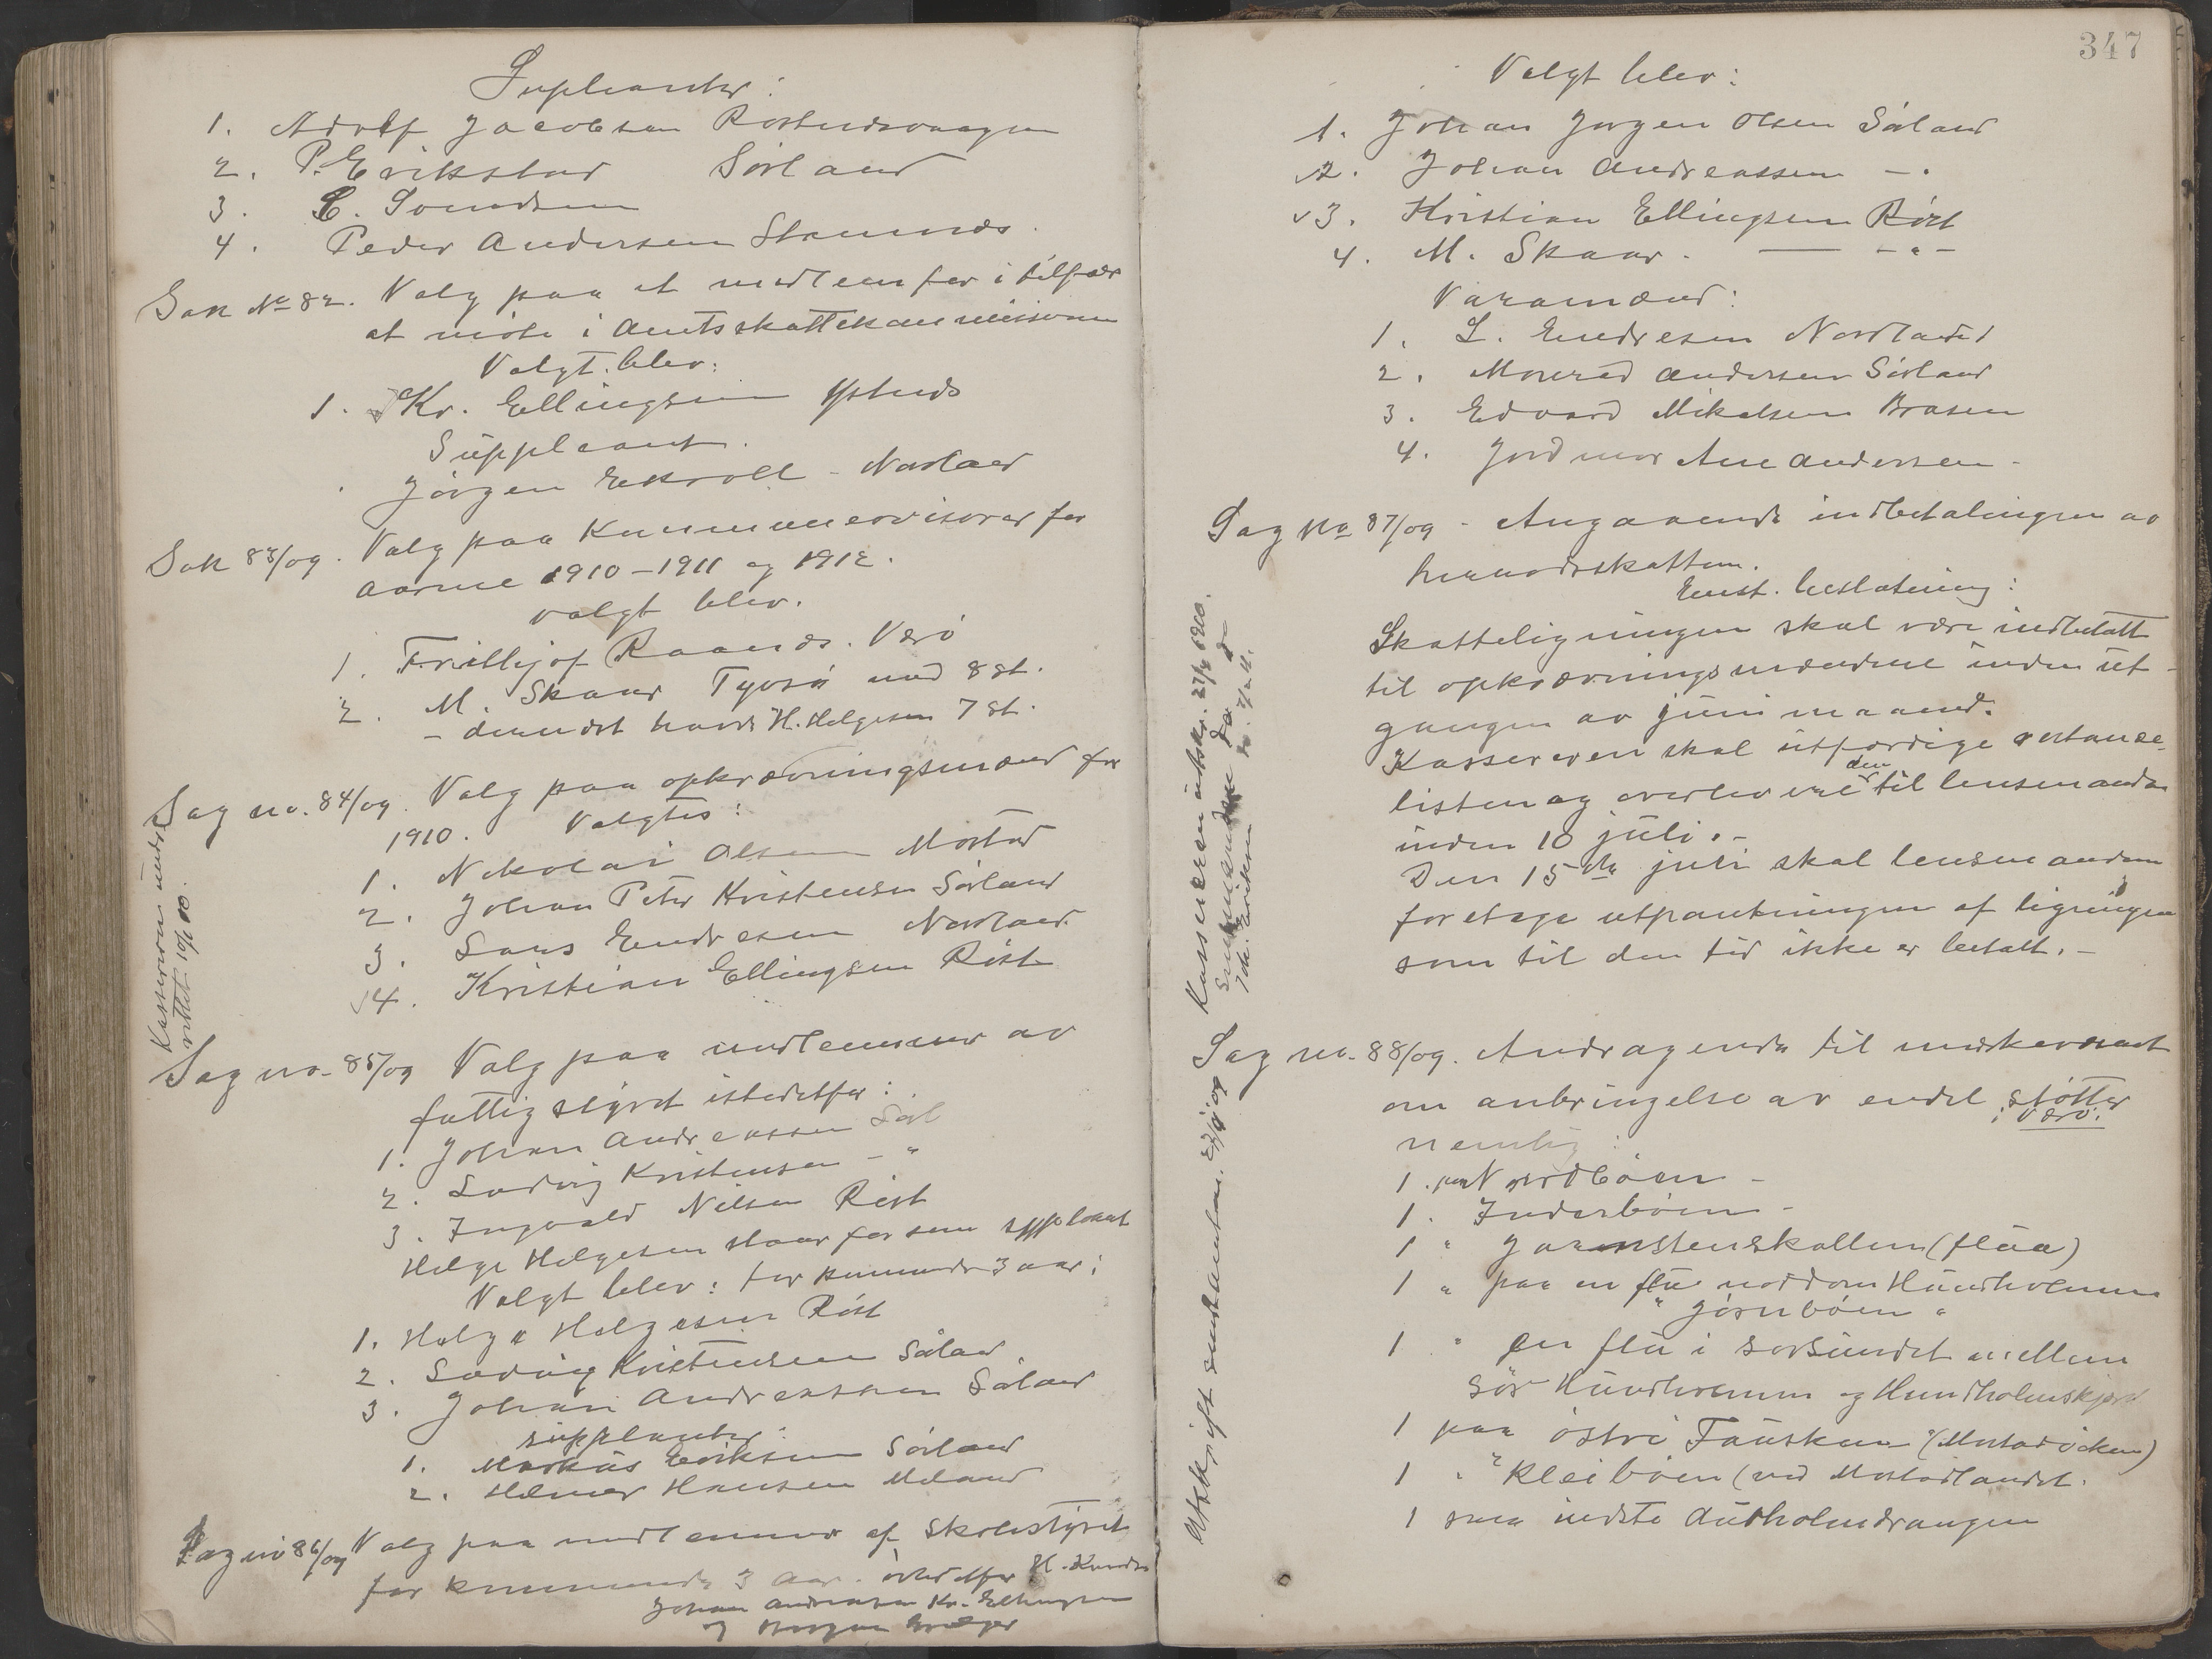 Supleanter:
1. Adolf Jacobsen Røstnesvaagen
2. P. Erikstad Sørland
3. C. Svendsen
4. Peder Andersen Stamnæs.
Sak No 82. Valg paa et medlem for i tilfælde
at møte i Amtsskattekommissionen
Valgt blev:
1. Kr. Ellingsen Ystnes
Suppleant.
Jørgen Ekroll - Nordland
Sak 83/09. Valg paa Kommunerevisorer for
aarene 1910-1911 og 1912.
valgt blev.
1. Frithjof Raanes. Værø
2. M. Skaar Tyvsø med 8 st.
- dernæst havde H. Helgesen 7 st.
Sag no. 84/09. Valg paa opkrævningsmænd for
1910. Valgtes:
1. Nikolai Olsen Mostad
2. Johan Peter Kristensen Sørland
3. Lars Endresen Nordland
4. Kristian Ellingsen Røst
Kassereren underrettet 10/1 10.
Sag no. 85/09 Valg paa medlemmer av
fattigstyret istedetfor:
1. Johan Andreassen Sørl
2. Ludvig Kristensen - "
3. Ingvald Nilsen Røst
Helge Helgesen staar for som suppleant
Valgt blev: for kommende 3 aar:
1. Helge Helgesen Røst
2. Ludvig Kristensen Sørland
3. Johan Andreassen Sørland
supleanter:
1. Markus Eriksen Sørland
2. Helmer Hansen Måland
Sag no 86/09 Valg paa medlemmer af Skolestyret
for kommende 3 aar. istedetfor H.
Johan Andreassen Kr. Ellingsen
og
347
Valgt blev:
1. Johan Jørgen Olsen Sørland
2. Johan Andreassen - .
3. Kristian Ellingsen Røst
4. M. Skaar. - " -
Varamænd:
1. L. Endresen Nordland
2. Monrad Andersen Sørland
3. Edvard Mikalsen Brasen
4. Jordmor Ane Andersen -
Sag No 87/09 - Angaaende indbetalingen av
herredsskatten.
Enst. beslutning:
Skatteligningen skal være indbetalt
til opkrævningsmændene inden ut-
gangen av juni maaned.
Kassereren skal utfærdige restanse-
listen og overlevere den til lensmanden
inden 10 juli. -
Den 15de juli skal lensmanden
foretage utpantningen af ligningen
som til den tid ikke er betalt. -
Kassereren utskr. 27/6 1910.
Lensmanden do
Joh. Eriksen do.
Sag no. 88/09. Andragende til merkevesenet
om anbringelse av endel støtter
i Værø.
nemlig:
1. paa Nordbøen -
1. Inderbøen -
1 " Jarnstenskallen (flua)
1 " paa en flu nordom Hundholmen
" Jørnbøen "
1 " en flu i sørsundet mellem
Sør Hundholmen og Hundholmskjær
1 paa østre Fausken (Mostadvicken)
1 " Kleibøen (ved Mostadlandet.
1 paa indste Audholmdrangen
Utskrift